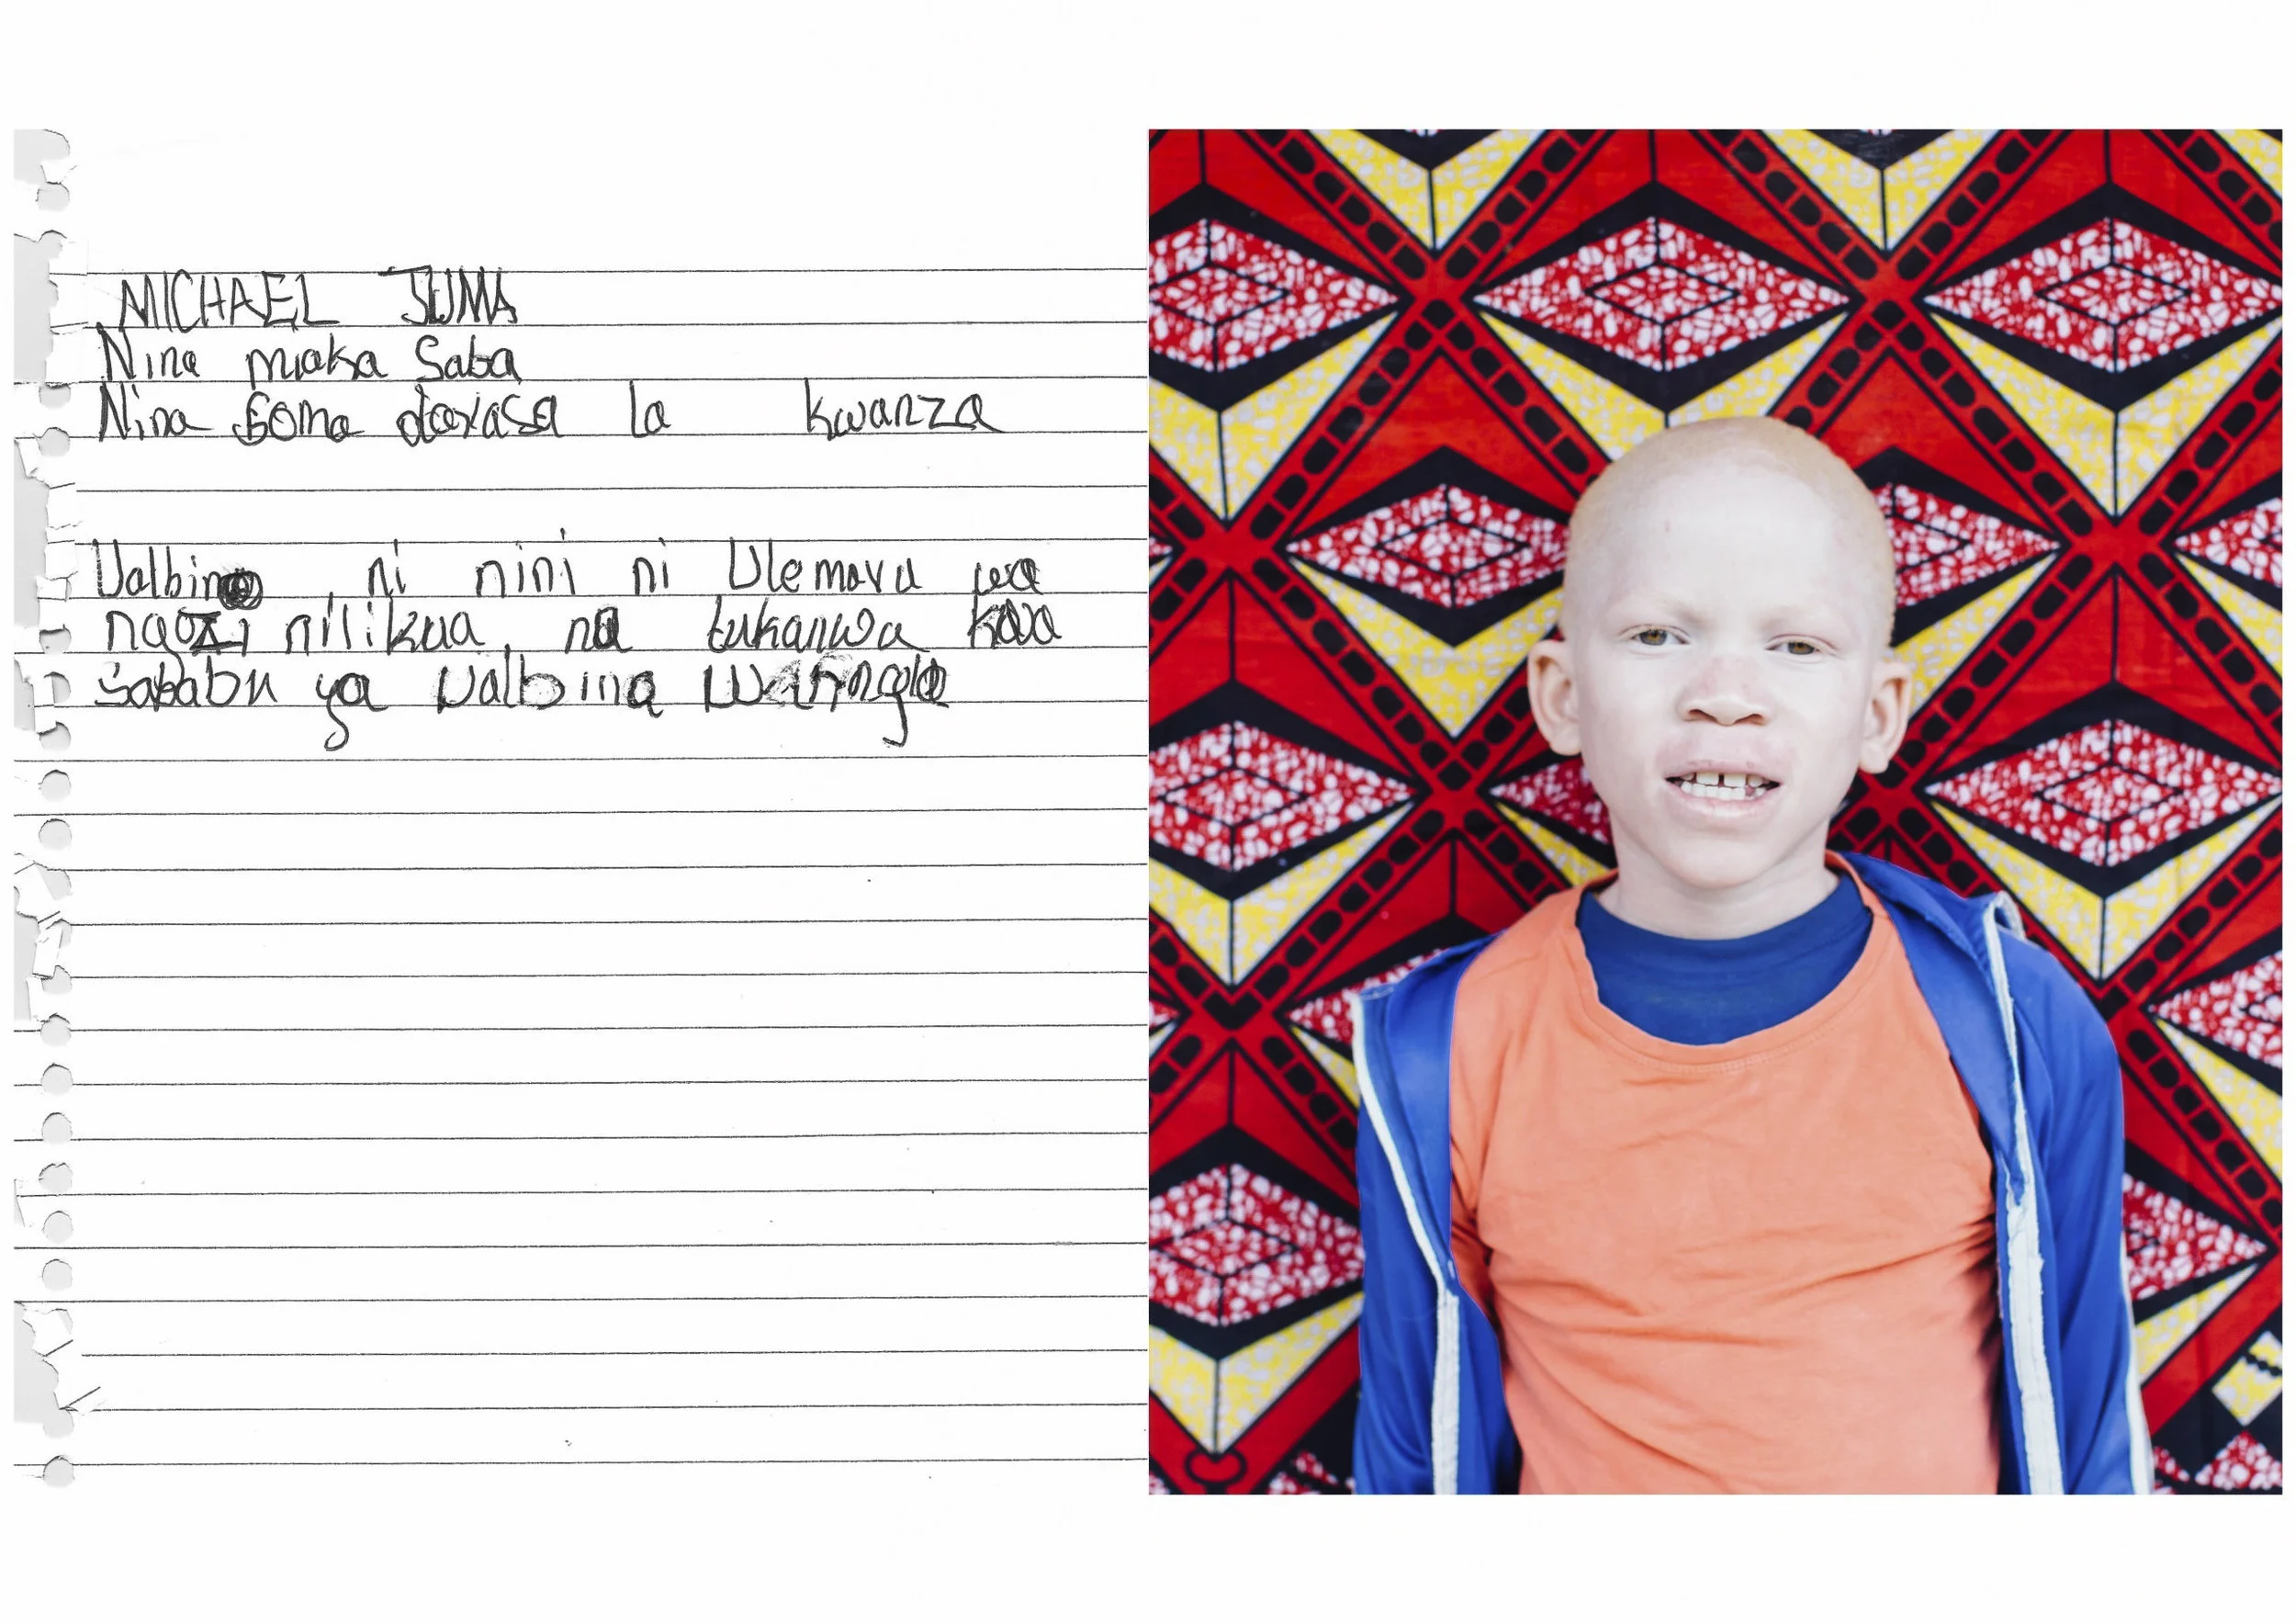 MICHAEL JUMA
Nina miaka Saba
Nina Soma darasa la kwanza
Ualbino ni nini ni Ulemavu wa
ngozi nilikua na tukanwa kwa
sababu ya Ualbina